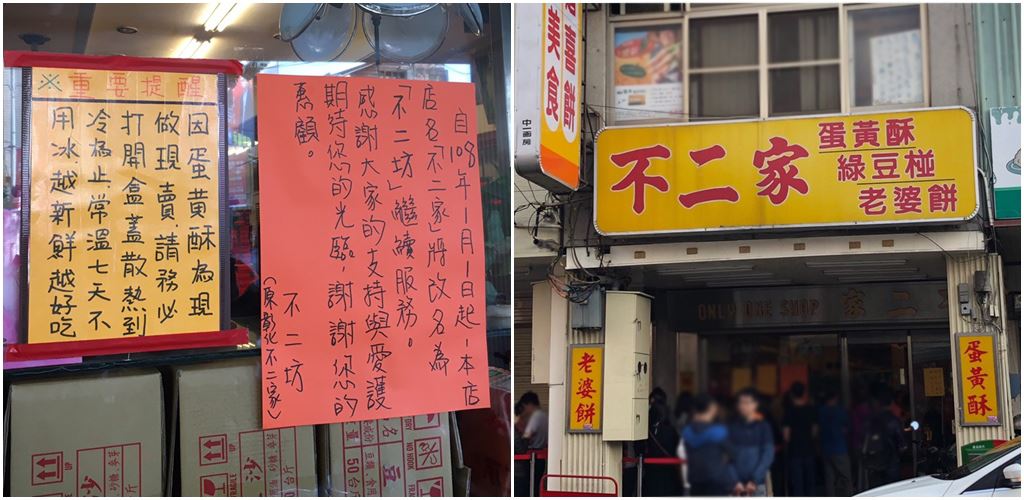 ※重要提醒
因蛋黃酥為現
做現賣,請務必
打開盒蓋散熱到
冷為止,常溫七天不
用冰越新鮮越好吃
自108年1月1日起,本店
店名「不二家」將改名為
「不二坊」繼續服務。
感謝大家的支持與愛護
期待您的光臨,謝謝您的
惠顧。
不二坊
(原彰化不二家)
UP
FRAGILE
沙
豆
50台斤
NO HOOK
喜餅
美食
中一画房
不二家
蛋黃酥
綠豆椪
老婆餅
ONLY ONE SHOP 家二不
老婆餅
蛋黃酥